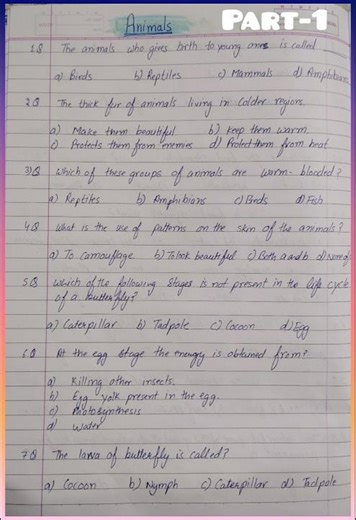 PART-1
Animals
1Q The animals who gives birth to young ones is called
a) Birds b) Reptiles c) Mammals d) Amphibians
2Q The thick fur of animals living in colder regions
a) Make them beautiful b) Keep them warm
c) Protects them from enemies d) Protect them from heat
3)Q Which of these groups of animals are warm-blooded?
a) Reptiles b) Amphibians c) Birds d) Fish
4Q What is the use of patterns on the skin of the animals?
a) To camouflage b) To look beautiful c) Both a and b d) None of
5Q Which of the following stages is not present in the life cycle
of a butterfly?
a) Caterpillar b) Tadpole c) Cocoon d) Egg
6Q At the egg stage the energy is obtained from?
a) Killing other insects.
b) Egg yolk present in the egg.
c) Photosynthesis
d) Water
7Q The larva of butterfly is called?
a) Cocoon b) Nymph c) Caterpillar d) Tadpole